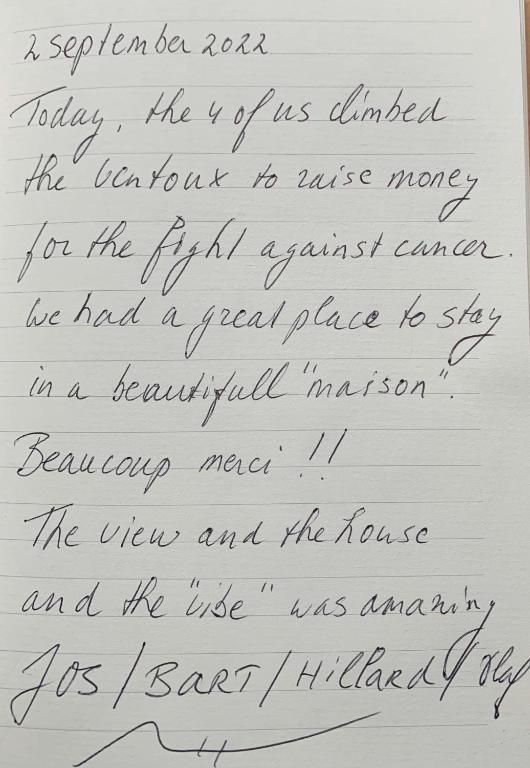 2 september 2022
Today, the 4 of us climbed
the Ventoux to raise money
for the fight against cancer.
We had a great place to stay
in a beautifull "maison".
Beaucoup merci !!
The view and the house
and the "vibe" was amazing
JOS / BART / HillARD / Olaf